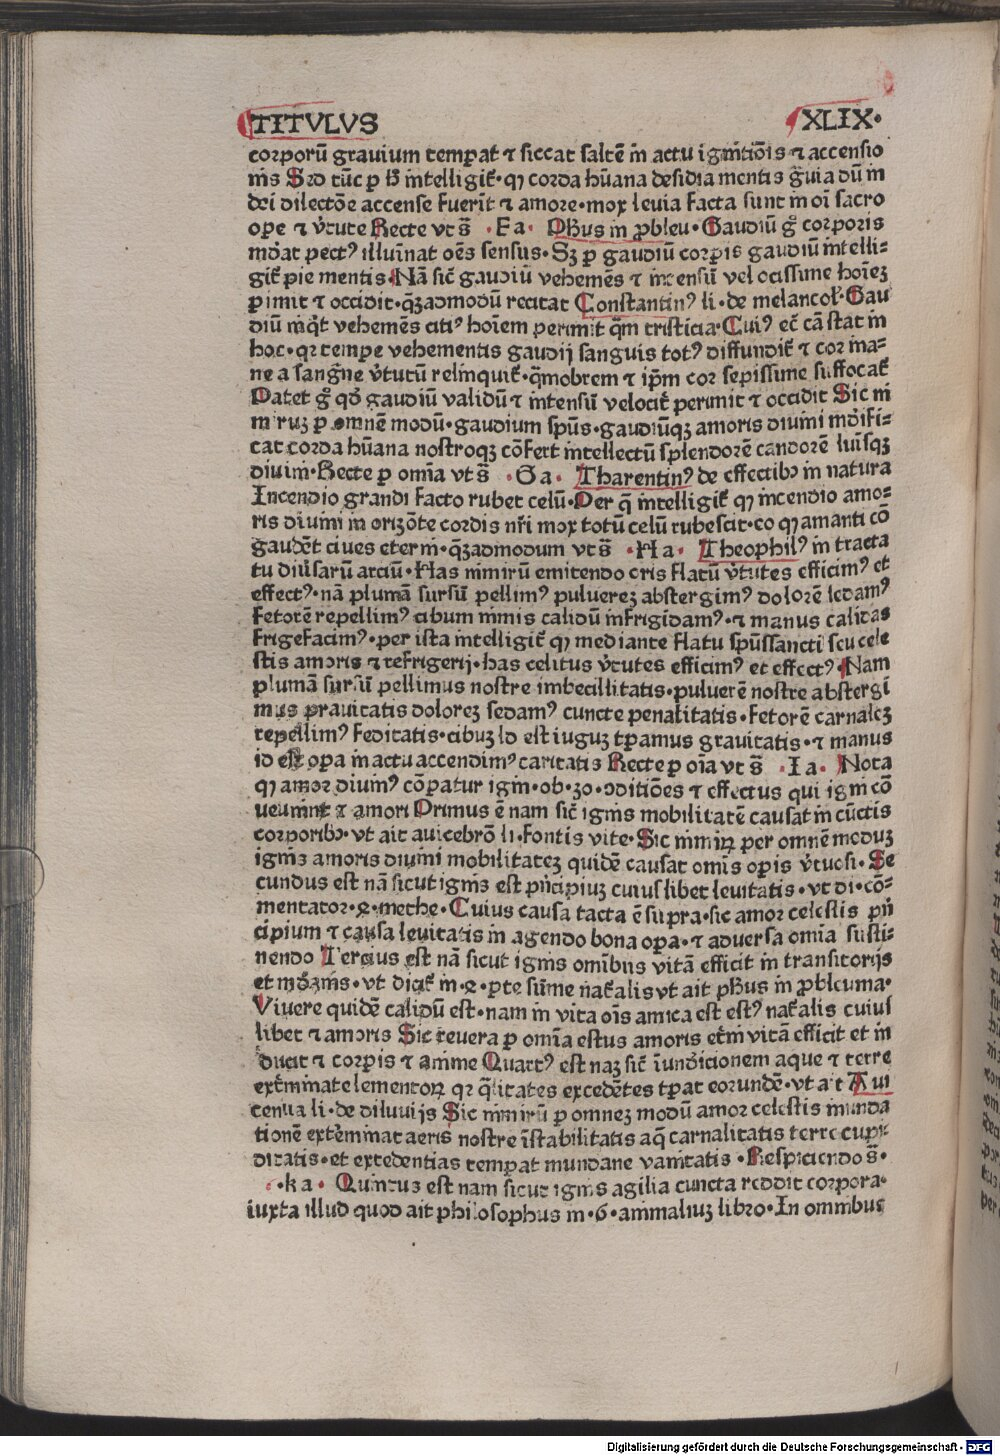 TITVLVS XLIX·
corporū grauium temperat ⁊ siccat saltē in actu ignitiōis ⁊ accensio
nis Sed tūc p hͦ intelligit̄· qꝫ corda hūana desidia mentis grauia dū in
dei dilectōe accense fuerīt ⁊ amore·mox leuia facta sunt in oī sacro
ope ⁊ v̄tute Recte vt s̄ ·Fa· Phus in pbleu·Gaudiū gͦ corporis
mōat pectꝰ illuīnat oēs sensus·Sꝫ p gaudiū corpis gaudiū intelli-
git̄ pie mentis·Nā sic̄ gaudiū vehemēs ⁊ intensiū velocissime hoīeꝫ
pimit ⁊ occidit·qꝫadmodū recitat Constantinꝰ li·de melancol̄·Gau
diū inqͥt vehemēs citiꝰ hoīem perimit qm̄ tristicia·Cuiꝰ ec̄ cā stat in
hoc·qꝛ tempe vehementis gaudij sanguis totꝰ diffundit̄ ⁊ cor ina-
ne a sangͥne v̄tutū relinquit̄·qͣmobrem ⁊ ip̄m cor sepissime suffocat̄
Patet gͦ qͦd gaudiū validū ⁊ intensiū velocit̄ perimit ⁊ occidit Sic ni
miruꝫ p omnē modū·gaudium spūs·gaudiūqꝫ amoris diuini mōifi-
cat corda hūana nostroqꝫ cōfert intellectū splendorē candorē luīsqꝫ
diuini·Recte p omīa vt s̄ ·Ga· Tharentinꝰ de effectibꝰ in natura
Incendio grandi facto rubet celū·Per qͣ intelligit̄ qꝫ incendio amo-
ris diuini in orizōte cordis nr̄i mox totū celū rubescit·eo qꝫ amanti cō
gaudēt ciues eterni·qꝫadmodum vt s̄ ·Ha· Theophilꝰ in tracta
tu diūsarū arciū·Has nimirū emitendo oris flatū v̄tutes efficimꝰ et
effectꝰ·nā plumā sursū pellimꝰ puluereꝫ abstergimꝰ dolorē sedamꝰ
fetorē repellimꝰ cibum nimis calidū infrigidamꝰ·⁊ manus calidas
frigefacimꝰ·per ista intelligit̄ qꝫ mediante flatu spūssancti seu cele
stis amoris ⁊ refrigerij·has celitus v̄tutes efficimꝰ et effectꝰ·Nam
plumā sursū pellimus nostre imbecillitatis·puluerē nostre abstergi
mus prauitatis doloreꝫ sedamꝰ cuncte penalitatis·fetorē carnaleꝫ
repellimꝰ feditatis·cibuꝫ id est iuguꝫ tpamus grauitatis·⁊ manus
id est opa in actu accendimꝰ caritatis Recte p oīa vt s̄ ·Ia· Nota
qꝫ amor diuinꝰ cōpatur igni·ob·30·ɔditiōes ⁊ effectus qui igni cō
ueniūt ⁊ amori Primus ē nam sic̄ ignis mobilitatē causat in cūctis
corporibꝰ·vt ait auicebrō li·fontis vite·Sic nimiꝝ per omnē moduꝫ
ignis amoris diuini mobilitateꝫ quidē causat omīs opis v̄tuosi·Se
cundus est nā sicut ignis est pn̄cipiuꝫ cuiuslibet leuitatis·vt di·cō-
mentator·2·methe·Cuius causa tacta ē supra·sic amor celestis pn̄
cipium ⁊ causa leuitatis in agendo bona opa·⁊ aduersa omīa susti-
nendo Tercius est nā sicut ignis omībus vitā efficit in transitorijs
et mōanis·vt dicit̄ in·2·pte sūme nat̄alis vt ait phus in pbleuma·
Viuere quidē calidū est·nam in vita oīs amica est estꝰ nat̄alis cuius
libet ⁊ amoris Sic reuera p omīa estus amoris et̄m vitā efficit et in
ducit ⁊ corpis ⁊ anime Quartꝰ est naꝫ sic̄ īundicionem aque ⁊ terre
ext̄minat elementoꝝ qꝛ qͣlitates excedētes tpat eorundē·vt ait Aui
cenna li·de diluuijs Sic nimirū p omneꝫ modū amor celestis inunda
tionē ext̄minat aeris nostre īstabilitatis aqͣ carnalitatis terre cupi-
ditatis·et excedentias temperat mundane vanitatis·Respiciendo s̄·
·ka· Quintus est nam sicut ignis agilia cuncta reddit corpora·
iuxta illud quod ait philosophus in·6·animaliuꝫ libro·In omnibus
Digitalisierung gefördert durch die Deutsche Forschungsgemeinschaft - DFG